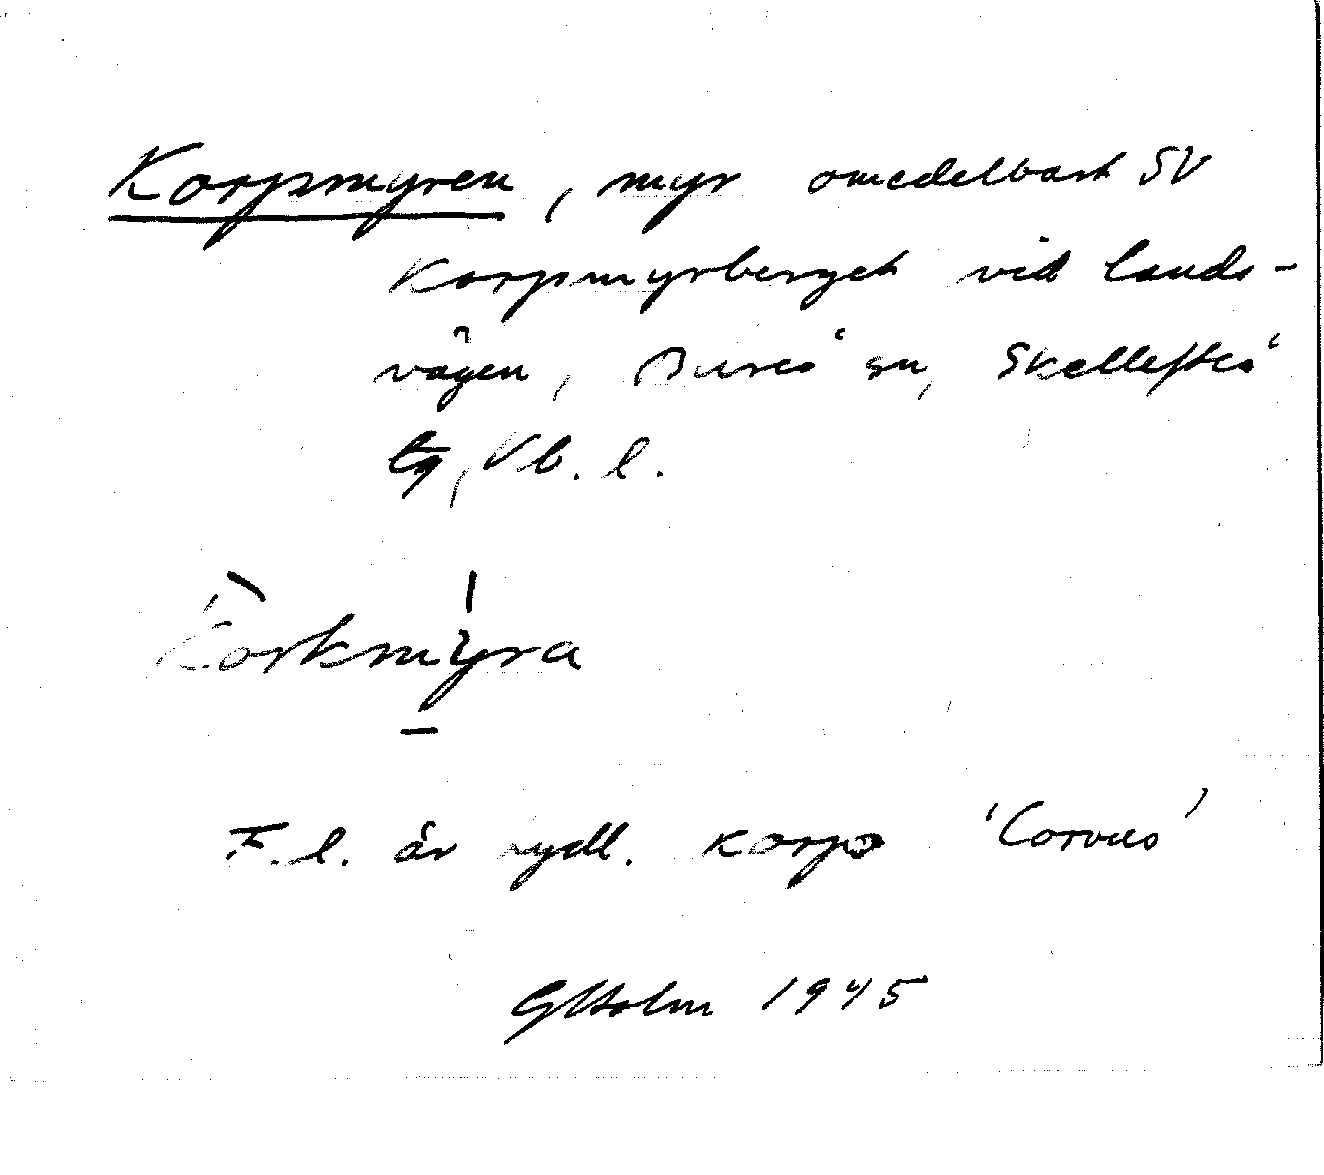 Korpmyren, myr omedelbart SV
Korpmyrberget vid lands-
vägen, Bureå sn, Skellefteå
tg, Vb. l.
Korkmyra
F.l. är tydl. korp 'Corvus'
GHolm 1945